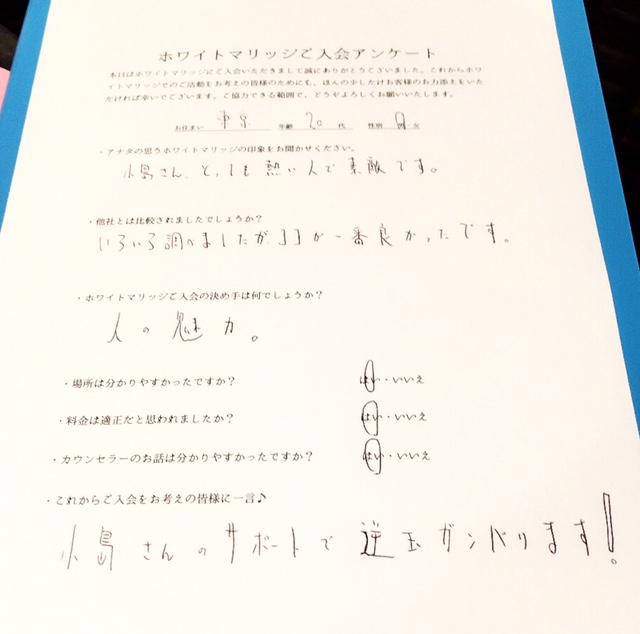 ホワイトマリッジご入会アンケート
本日はホワイトマリッジにご入会いただきまして誠にありがとうございました。これからホワ
イトマリッジでのご活動をお考えの皆様のためにも、ほんの少しだけお客様のお力添えをいた
だければ幸いでございます。ご協力できる範囲で、どうぞよろしくお願いいたします。
お住まい 東京 年齢 20 代 性別 男・女
・アナタの思うホワイトマリッジの印象をお聞かせください。
小島さん、とっても熱い人で素敵です。
・他社とは比較されましたでしょうか？
いろいろ調べましたが、ココが一番良かったです。
・ホワイトマリッジご入会の決め手は何でしょうか？
人の魅力。
・場所は分かりやすかったですか？ はい・いいえ
・料金は適正だと思われましたか？ はい・いいえ
・カウンセラーのお話は分かりやすかったですか？ はい・いいえ
・これからご入会をお考えの皆様に一言♪
小島さんのサポートで逆玉ガンバリます！